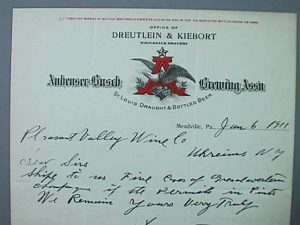 OFFICE OF
DREUTLEIN & KIEBORT
WHOLESALE DEALERS
Anheuser-Busch Brewing Assn
ST. LOUIS DRAUGHT & BOTTLED BEER.
Meadville, Pa., Jan 6 1911
Pleasant Valley Wine Co
Rheims N Y
Dear Sirs
Ship to us Five Cases of
Champagne if the in Pints
We Remain Yours Very Truly